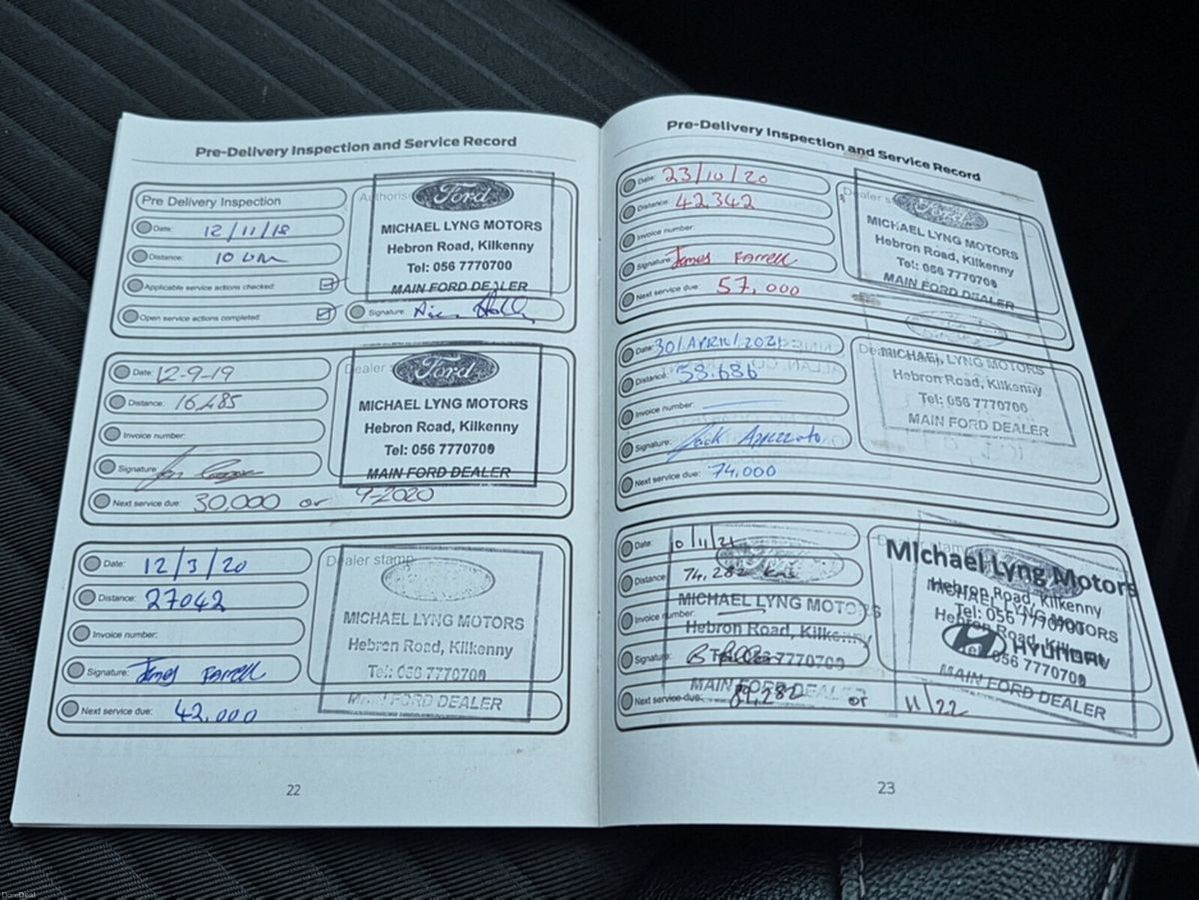 Pre-Delivery Inspection and Service Record
Pre Delivery Inspection
Date: 12/11/18
Distance: 10 km
Applicable service actions checked:
Open service actions completed:
Ford
MICHAEL LYNG MOTORS
Hebron Road, Kilkenny
Tel: 056 7770700
MAIN FORD DEALER
Signature:
Date: 12-9-19
Distance: 16,485
Invoice number:
Signature:
Next service due: 30,000 or 9-2020
Dealer
Ford
MICHAEL LYNG MOTORS
Hebron Road, Kilkenny
Tel: 056 7770700
MAIN FORD DEALER
Date: 12/3/20
Distance: 27042
Invoice number:
Signature: James Farrell
Next service due: 42,000
Dealer stamp
MICHAEL LYNG MOTORS
Hebron Road, Kilkenny
Tel: 056 7770700
MAIN FORD DEALER
22
Pre-Delivery Inspection and Service Record
Date: 23/10/20
Distance: 42,342
Invoice number:
Signature: James Farrell
Next service due: 57,000
Dealer
Ford
MICHAEL LYNG MOTORS
Hebron Road, Kilkenny
Tel: 056 7770700
MAIN FORD DEALER
Date: 30/APRIL/2021
Distance: 58,686
Invoice number:
Signature: Jack
Next service due: 74,000
MICHAEL LYNG MOTORS
Hebron Road, Kilkenny
Tel: 056 7770700
MAIN FORD DEALER
Date: 10/11/21
Distance: 74,282 kms
Invoice number:
Signature:
Next service due: 89,282 or 11/22
MICHAEL LYNG MOTORS
Hebron Road, Kilkenny
Tel: 056 7770700
MAIN FORD DEALER
Dealer stamp
Michael Lyng Motors
Hebron Road, Kilkenny
Tel: 056 7770700
HYUNDAI
MICHAEL LYNG MOTORS
Hebron Road, Kilkenny
Tel: 056 7770700
MAIN FORD DEALER
23
DoneDeal